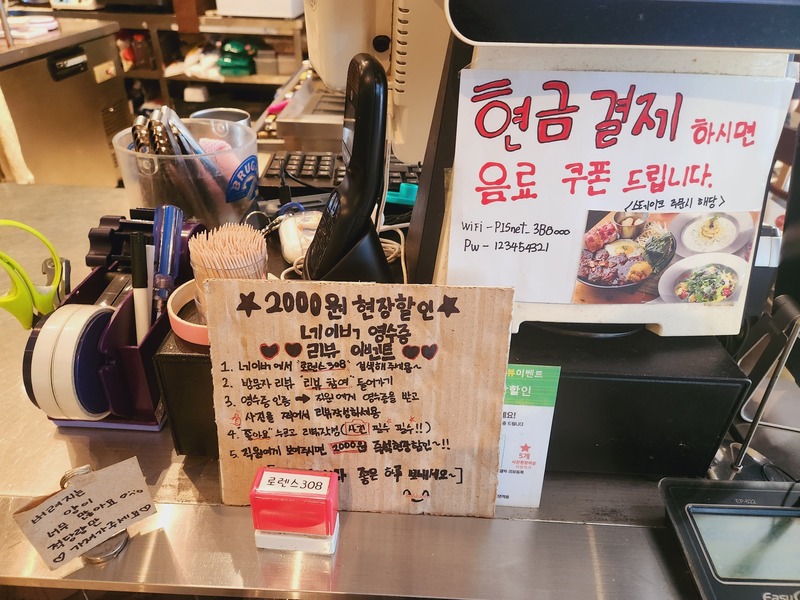 현금 결제 하시면
음료 쿠폰 드립니다.
<스테이크 주문시 해당>
WiFi - PISnet_3B8000
PW - 123454321
★2000원 현장할인★
네이버 영수증
리뷰 이벤트
1. 네이버에서 "로렌스308" 검색해주세요~
2. 방문자 리뷰 "리뷰 참여" 들어가기
3. 영수증 인증 → 직원에게 영수증을 받고
사진을 찍어서 리뷰작성하세용
4. "좋아요" 누르고 리뷰작성(사진 필수 필수!!)
5. 직원에게 보여주시면 2000원 현장할인~!!
좋은 하루 보내세요~]
로렌스308
버려지는
양이
너무 많아요
적당량만
♡ 가져가주세요 ♡
이벤트
할인
5개
BRUG
EasyC